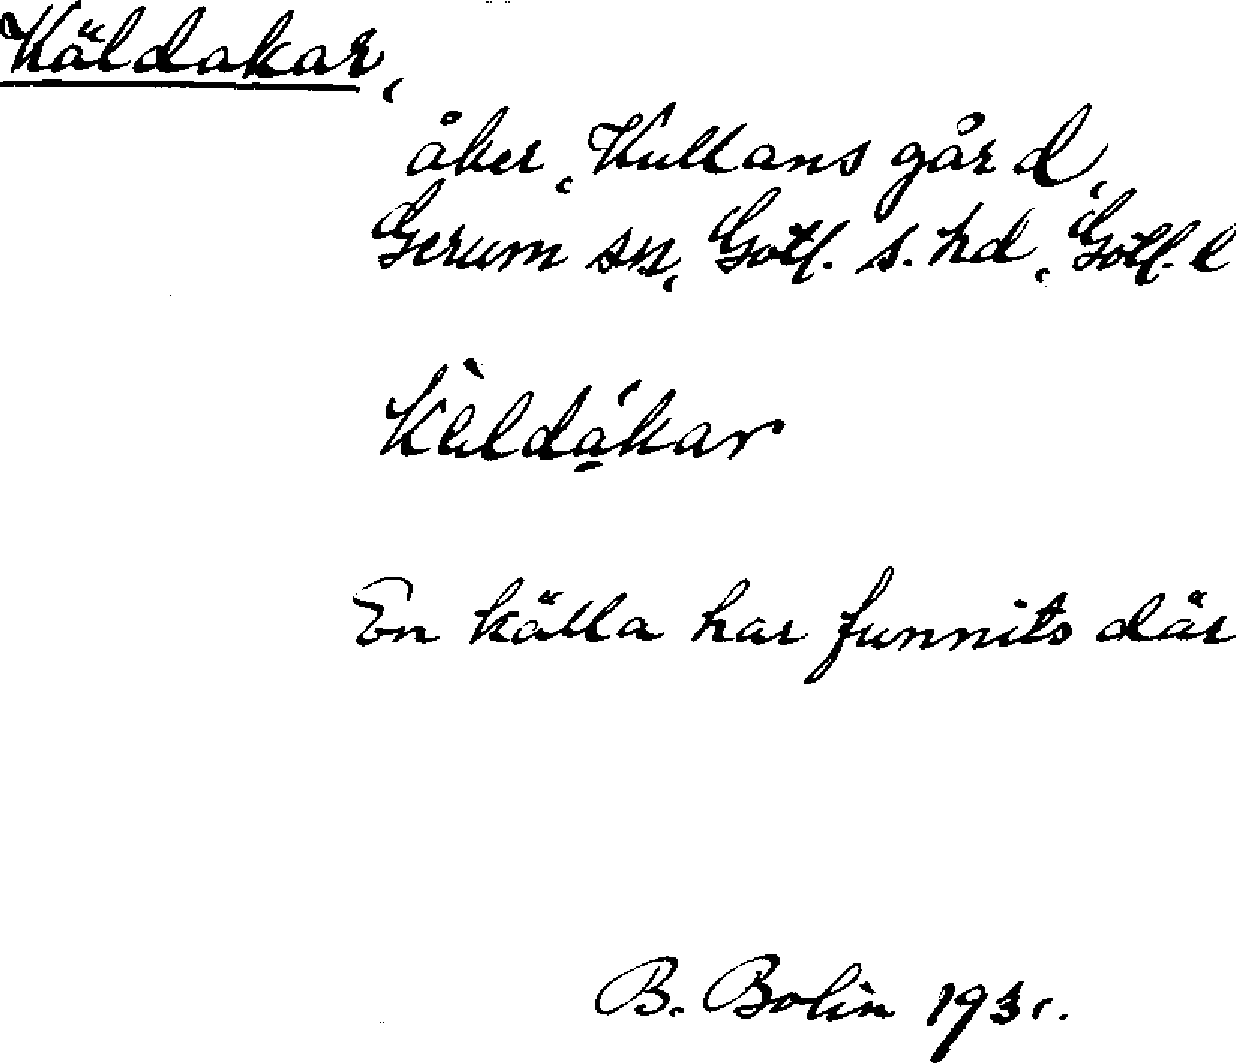 Käldakar,
åker, Kullans gård,
Gerum sn, Gotl. s. hd, Gotl. l
Kàldákar
En källa har funnits där
B. Bolin 1931.